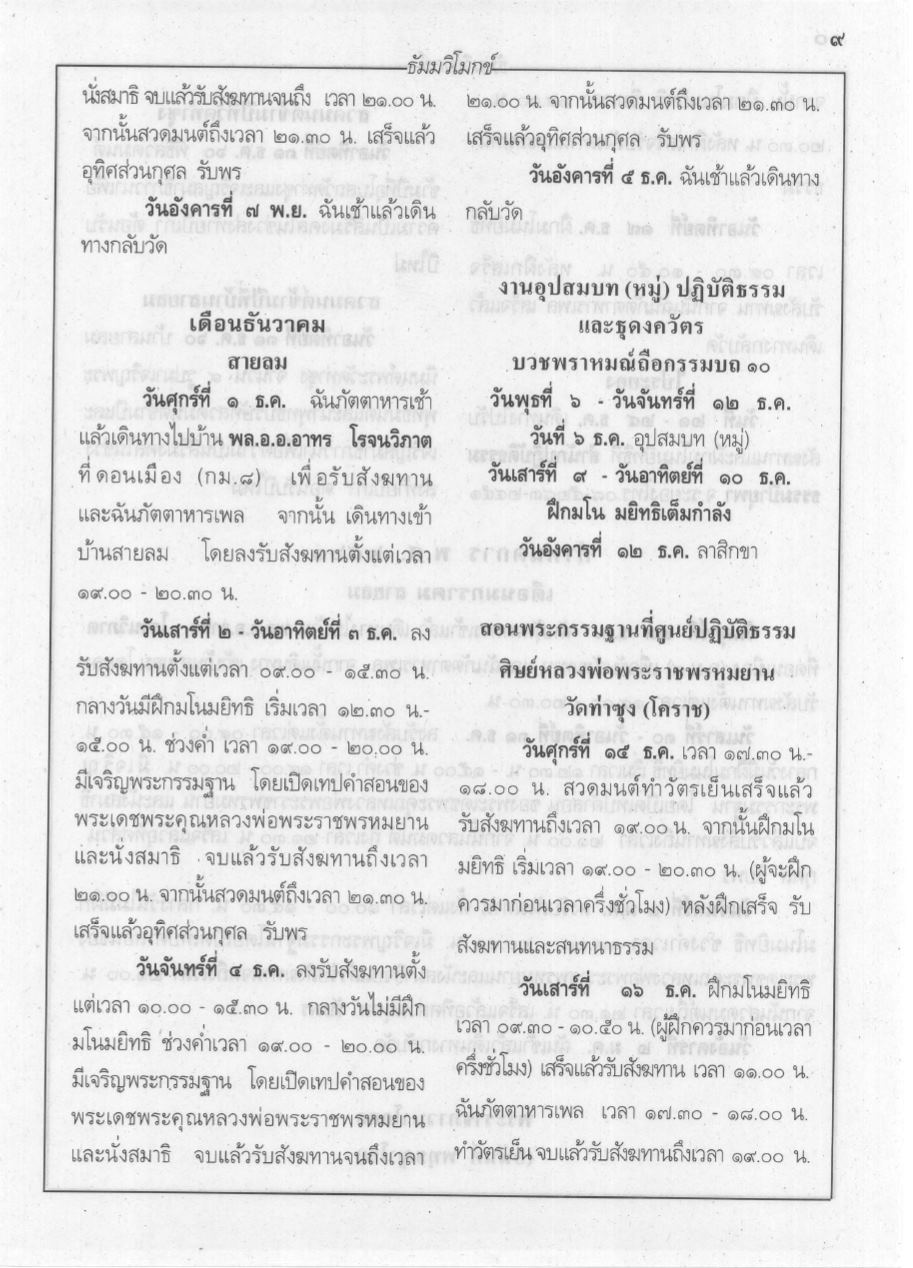 ๙
ธัมมวิโมกข์
นั่งสมาธิ จบแล้วรับสังฆทานจนถึง เวลา ๒๑.๐๐ น.
จากนั้นสวดมนต์ถึงเวลา ๒๑.๓๐ น. เสร็จแล้ว
อุทิศส่วนกุศล รับพร
วันอังคารที่ ๗ พ.ย. ฉันเช้าแล้วเดิน
ทางกลับวัด
เดือนธันวาคม
สายลม
วันศุกร์ที่ ๑ ธ.ค. ฉันภัตตาหารเช้า
แล้วเดินทางไปบ้าน พล.อ.อ.อาทร โรจนวิภาต
ที่ ดอนเมือง (กม.๘) เพื่ อรับสังฆทาน
และฉันภัตตาหารเพล จากนั้น เดินทางเข้า
บ้านสายลม โดยลงรับสังฆทานตั้งแต่เวลา
๑๙.๐๐ - ๒๐.๓๐ น.
วันเสาร์ที่ ๒ - วันอาทิตย์ที่ ๓ ธ.ค. ลง
รับสังฆทานตั้งแต่เวลา ๐๙.๐๐ - ๑๕.๓๐ น.
กลางวันมีฝึกมโนมยิทธิ เริ่มเวลา ๑๒.๓๐ น.-
๑๕.๐๐ น. ช่วงค่ำ เวลา ๑๙.๐๐ - ๒๐.๐๐ น.
มีเจริญพระกรรมฐาน โดยเปิดเทปคำสอนของ
พระเดชพระคุณหลวงพ่อพระราชพรหมยาน
และนั่งสมาธิ จบแล้วรับสังฆทานถึงเวลา
๒๑.๐๐ น. จากนั้นสวดมนต์ถึงเวลา ๒๑.๓๐ น.
เสร็จแล้วอุทิศส่วนกุศล รับพร
วันจันทร์ที่ ๔ ธ.ค. ลงรับสังฆทานตั้ง
แต่เวลา ๑๐.๐๐ - ๑๕.๓๐ น. กลางวันไม่มีฝึก
มโนมยิทธิ ช่วงค่ำเวลา ๑๙.๐๐ - ๒๐.๐๐ น.
มีเจริญพระกรรมฐาน โดยเปิดเทปคำสอนของ
พระเดชพระคุณหลวงพ่อพระราชพรหมยาน
และนั่งสมาธิ จบแล้วรับสังฆทานจนถึงเวลา
๒๑.๐๐ น. จากนั้นสวดมนต์ถึงเวลา ๒๑.๓๐ น.
เสร็จแล้วอุทิศส่วนกุศล รับพร
วันอังคารที่ ๕ ธ.ค. ฉันเช้าแล้วเดินทาง
กลับวัด
งานอุปสมบท (หมู่) ปฏิบัติธรรม
และธุดงควัตร
บวชพราหมณ์ถือกรรมบถ ๑๐
วันพุธที่ ๖ - วันจันทร์ที่ ๑๒ ธ.ค.
วันที่ ๖ ธ.ค. อุปสมบท (หมู่)
วันเสาร์ที่ ๙ - วันอาทิตย์ที่ ๑๐ ธ.ค.
ฝึกมโน มยิทธิเต็มกำลัง
วันอังคารที่ ๑๒ ธ.ค. ลาสิกขา
สอนพระกรรมฐานที่ศูนย์ปฏิบัติธรรม
ศิษย์หลวงพ่อพระราชพรหมยาน
วัดท่าซุง (โคราช)
วันศุกร์ที่ ๑๕ ธ.ค. เวลา ๑๗.๓๐ น.-
๑๘.๐๐ น. สวดมนต์ทำวัตรเย็นเสร็จแล้ว
รับสังฆทานถึงเวลา ๑๙.๐๐ น. จากนั้นฝึกมโน
มยิทธิ เริ่มเวลา ๑๙.๐๐ - ๒๐.๓๐ น. (ผู้จะฝึก
ควรมาก่อนเวลาครึ่งชั่วโมง) หลังฝึกเสร็จ รับ
สังฆทานและสนทนาธรรม
วันเสาร์ที่ ๑๖ ธ.ค. ฝึกมโนมยิทธิ
เวลา ๐๙.๓๐ - ๑๐.๕๐ น. (ผู้ฝึกควรมาก่อนเวลา
ครึ่งชั่วโมง) เสร็จแล้วรับสังฆทาน เวลา ๑๑.๐๐ น.
ฉันภัตตาหารเพล เวลา ๑๗.๓๐ - ๑๘.๐๐ น.
ทำวัตรเย็น จบแล้วรับสังฆทานถึงเวลา ๑๙.๐๐ น.